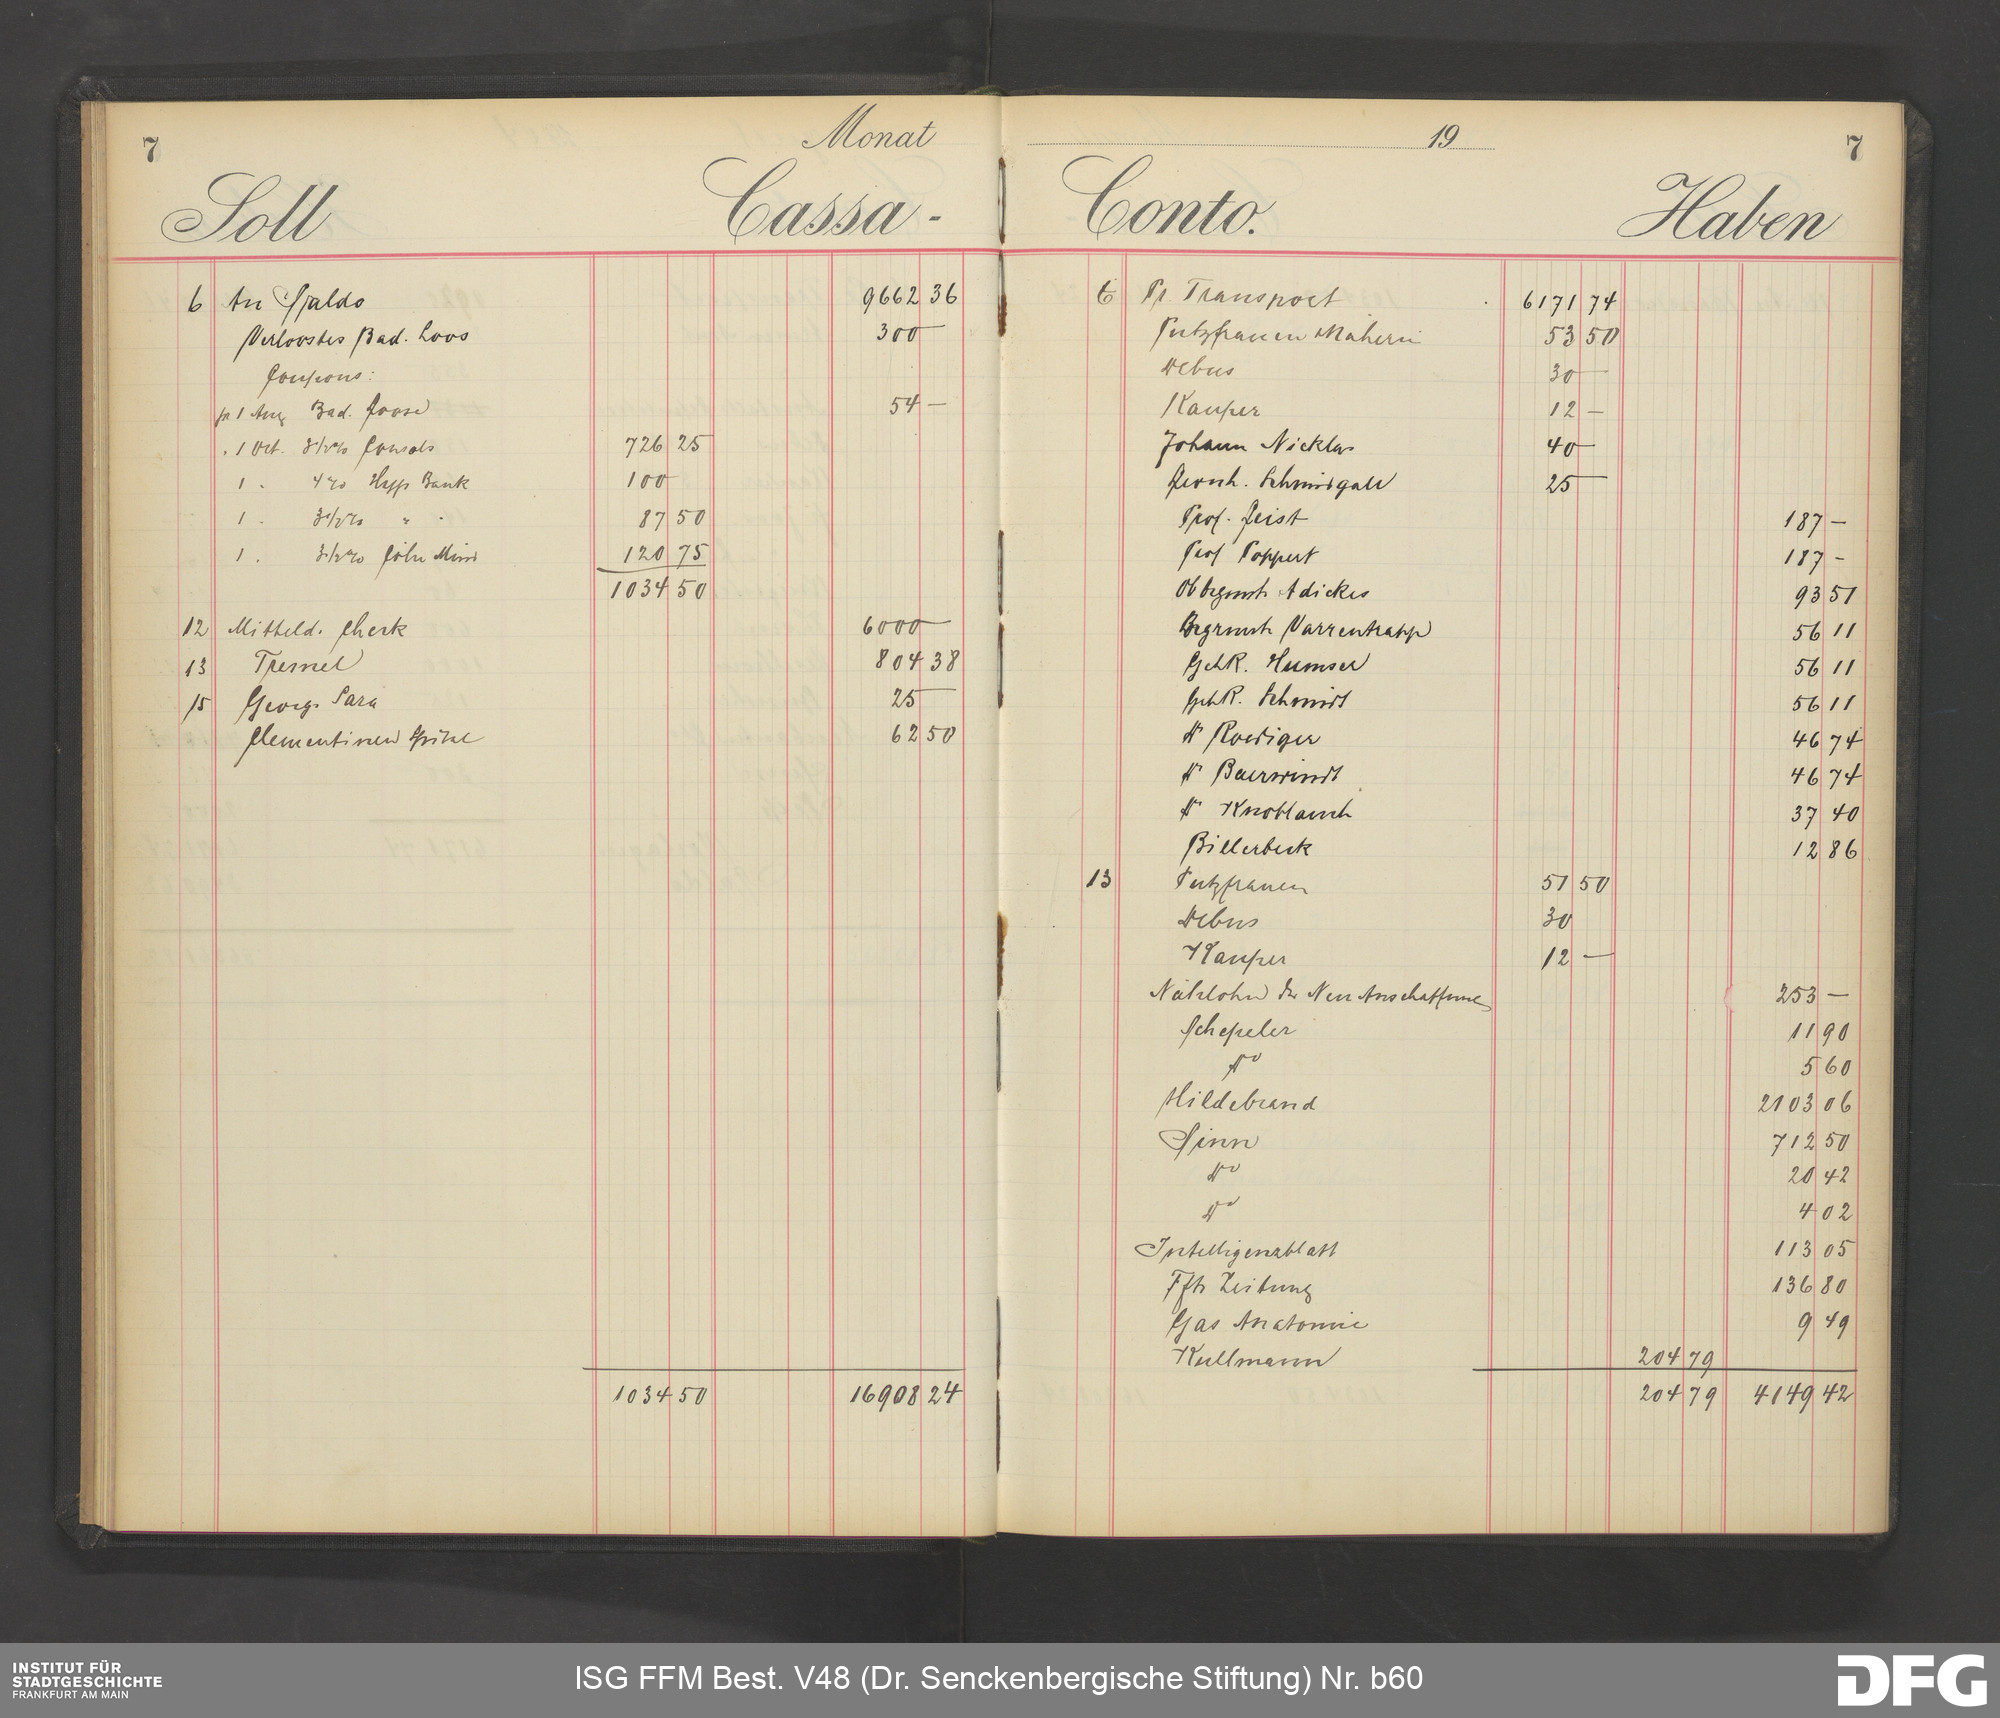 7 Monat
Soll Cassa-
6 An Saldo 9662 36
Verloostes Bad. Loos 300 —
Coupons:
pr 1 Aug Bad. Loose 54 —
" 1 Oct. 3 1/2 % Consols 726 25
1 " 4 % Hyp Bank 100 —
1 " 3 1/2 % " " 87 50
1 " 3 1/2 % Cöln Mind 120 75
1034 50
12 Mitteld. Check 6000 —
13 Tremel 804 38
15 Georg Sara 25 —
Clementinen Spital 62 50
1034 50 16908 24
19 7
Conto. Haben
6 Pr Transport 6171 74
Putzfrauen Näherin 53 50
Debus 30 —
Kauper 12 —
Johann Nicklas 40 —
Leonh. Schmidgall 25 —
Prof. Geist 187 —
Prof Poppert 187 —
Obbrgmstr Adickes 93 51
Brgrmstr Varrentrapp 56 11
GehR. Humser 56 11
GehR. Schmidt 56 11
Dr Roediger 46 74
Dr Baerwindt 46 74
Dr Knoblauch 37 40
Billerbeck 12 86
13 Putzfrauen 51 50
Debus 30
Kauper 12 —
Nählohn der Neu Anschaffung 253 —
Schepeler 11 90
do 5 60
Hildebrand 2103 06
Sinn 712 50
do 20 42
do 4 02
Intelligenzblatt 113 05
Fftr Zeitung 136 80
Gas Anatomie 9 49
Kullmann 204 79
204 79 4149 42
INSTITUT FÜR
STADTGESCHICHTE
FRANKFURT AM MAIN
ISG FFM Best. V48 (Dr. Senckenbergische Stiftung) Nr. b60
DFG